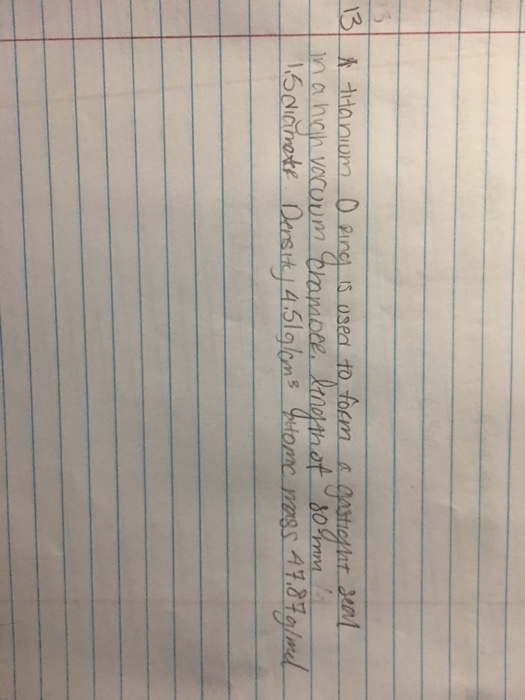 13 A titanium O ring is used to form a gastight seal
in a high vacuum chamber. length of 80.9mm in
1.5 diameter Density 4.51g/cm3 atomic mass 47.87g/mol